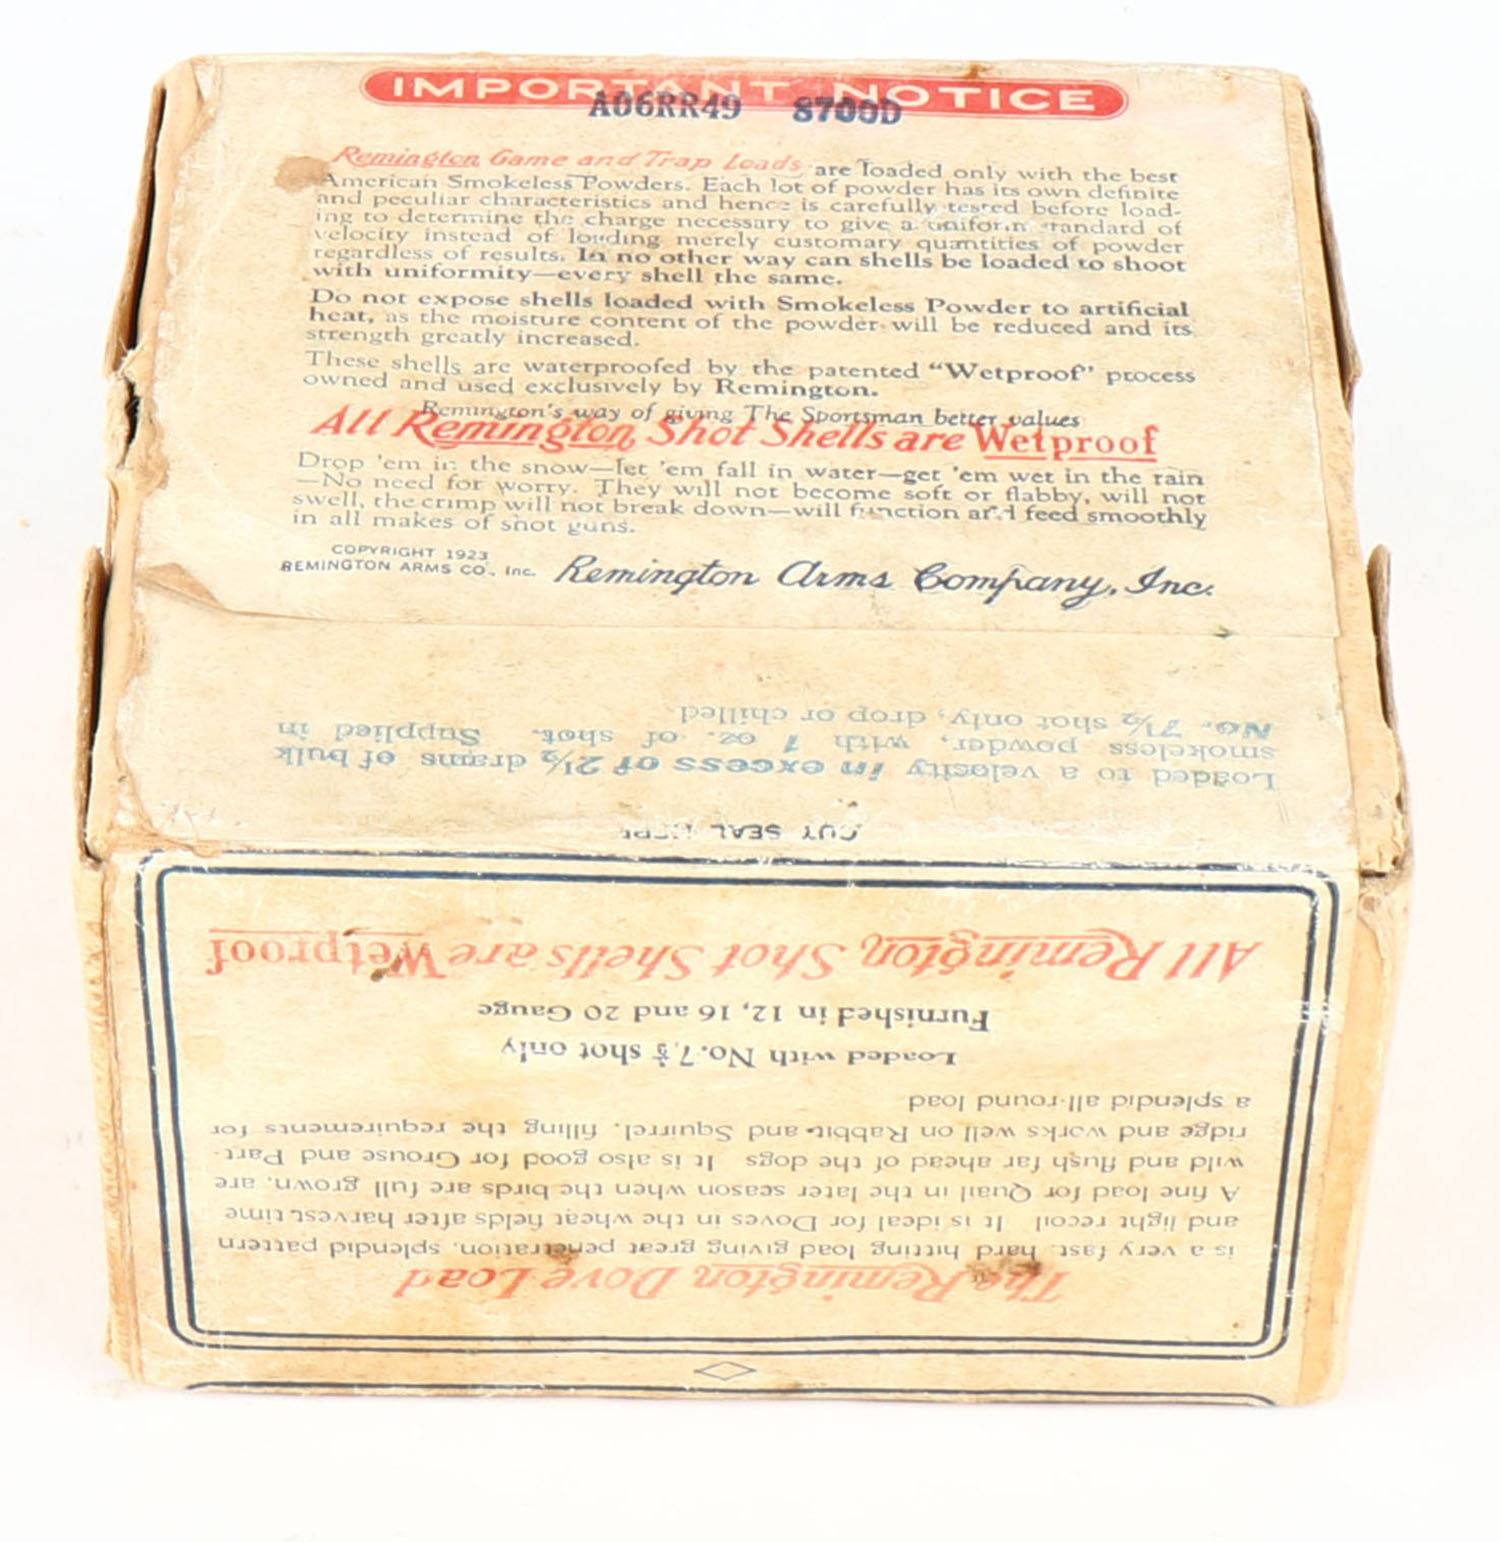 IMPORTANT NOTICE
A06RR49 8700D
Remington Game and Trap Loads are loaded only with the best
American Smokeless Powders. Each lot of powder has its own definite
and peculiar characteristics and hence is carefully tested before load-
ing to determine the charge necessary to give a uniform standard of
velocity instead of loading merely customary quantities of powder
regardless of results. In no other way can shells be loaded to shoot
with uniformity—every shell the same.
Do not expose shells loaded with Smokeless Powder to artificial
heat, as the moisture content of the powder will be reduced and its
strength greatly increased.
These shells are waterproofed by the patented "Wetproof" process
owned and used exclusively by Remington.
Remington's way of giving The Sportsman better values
All Remington Shot Shells are Wetproof
Drop 'em in the snow—let 'em fall in water—get 'em wet in the rain
—No need for worry. They will not become soft or flabby, will not
swell, the crimp will not break down—will function and feed smoothly
in all makes of shot guns.
COPYRIGHT 1923
REMINGTON ARMS CO., Inc.
Remington Arms Company, Inc.
CUT SEAL HERE
Loaded to a velocity in excess of 2½ drams of bulk
smokeless powder, with 1 oz. of shot. Supplied in
No. 7½ shot only, drop or chilled.
The Remington Dove Load
is a very fast, hard hitting load giving great penetration, splendid pattern
and light recoil It is ideal for Doves in the wheat fields after harvest time
A fine load for Quail in the later season when the birds are full grown, are
wild and flush far ahead of the dogs It is also good for Grouse and Part-
ridge and works well on Rabbit and Squirrel, filling the requirements for
a splendid all-round load
Loaded with No. 7½ shot only
Furnished in 12, 16 and 20 Gauge
All Remington Shot Shells are Wetproof